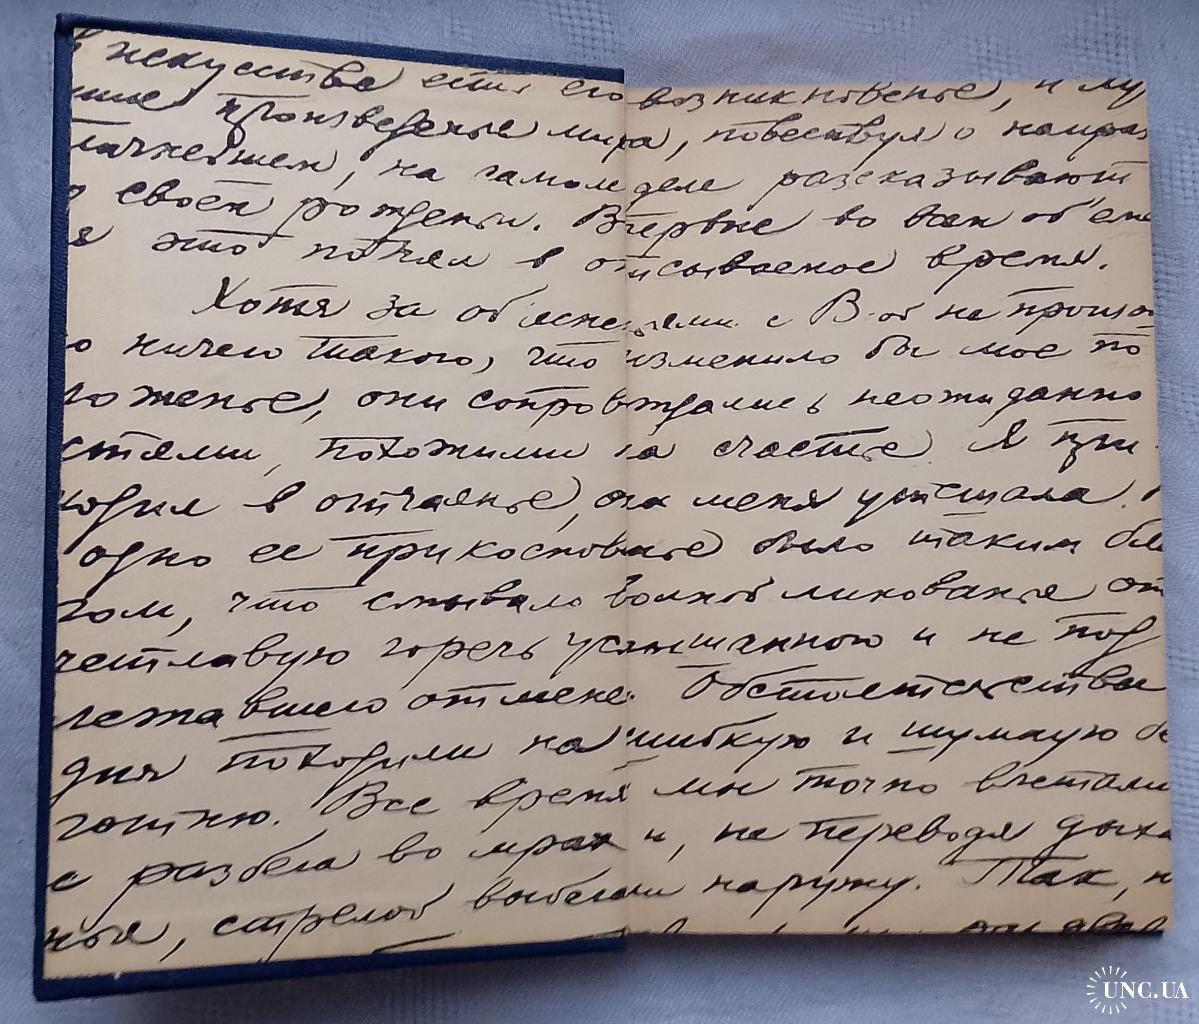 искусстве есть его возникновенье, и лу
шие произведенья мира, повествуя о наираз
личнейшем, на самом деле рассказывают
о своем рожденьи. Впервые во всем объеме
я это понял в описываемое время.
Хотя за объясненьями с В-ой не произо
о ничего такого, что изменило бы мое по
ложенье, они сопровождались неожиданно
стями, похожими на счастье. Я при
ходил в отчаянье, она меня утешала.
одно ее прикосновенье было таким бла
гом, что смывало волной ликованья от
четливую горечь услышанного и не под
лежавшего отмене. Обстоятельства
дня походили на шибкую и шумную бе
готню. Все время мы точно влетали
с разбега во мрак и, не переводя дыха
нья, стрелой выбегали наружу. Так, н
UNC.UA